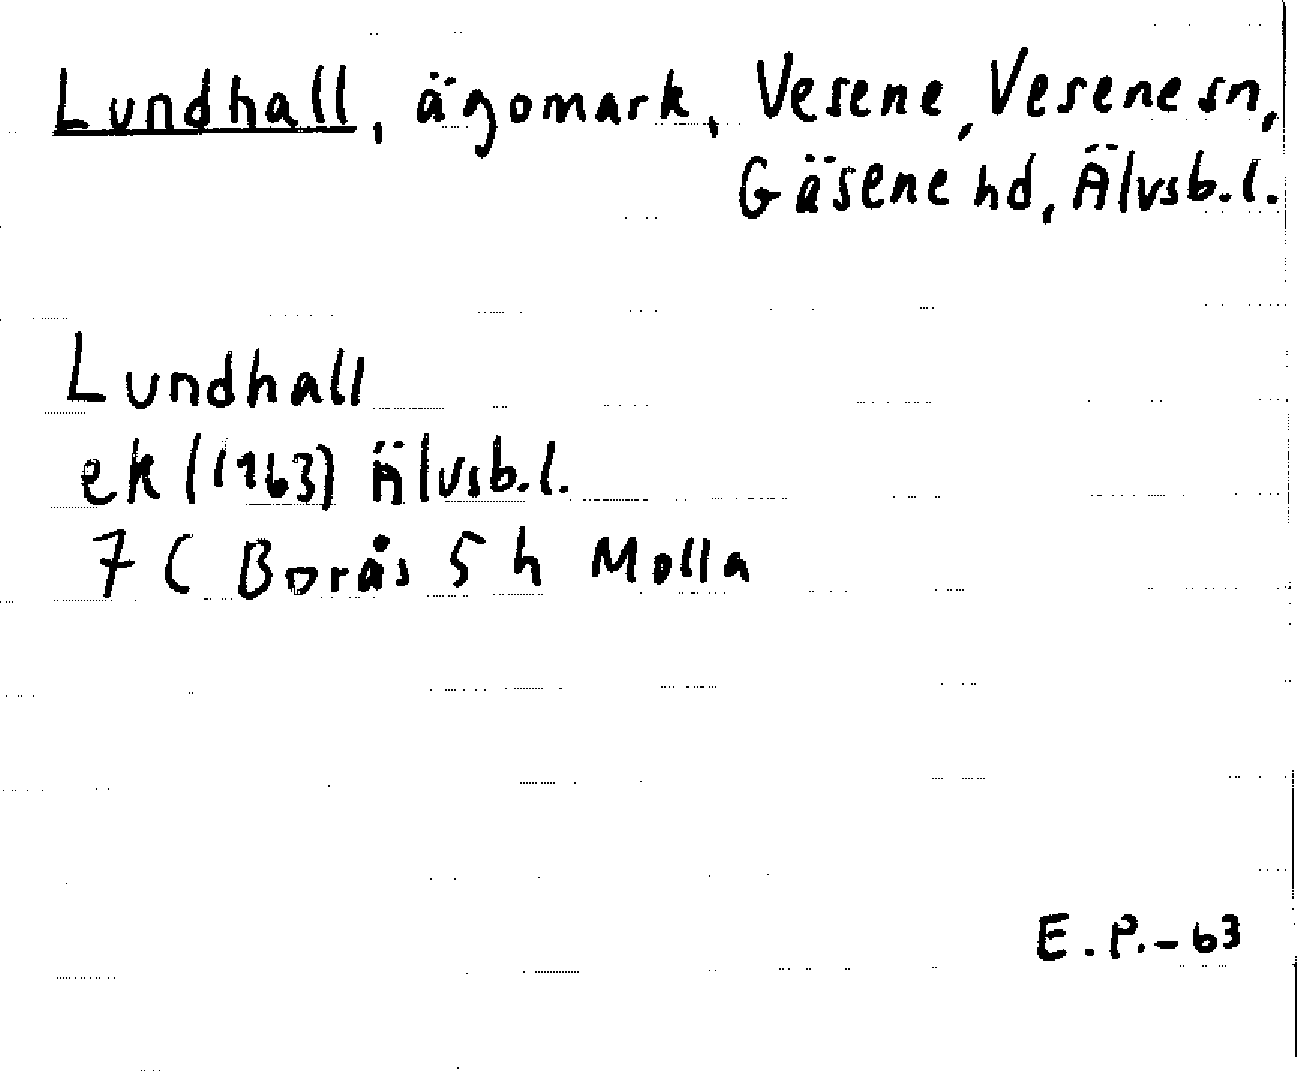 Lundhall, ägomark, Vesene, Vesene sn,
Gäsene hd, Älvsb.l.
Lundhall
ek (1963) Älvsb.l.
7 C Borås 5 h Molla
E.P.-63